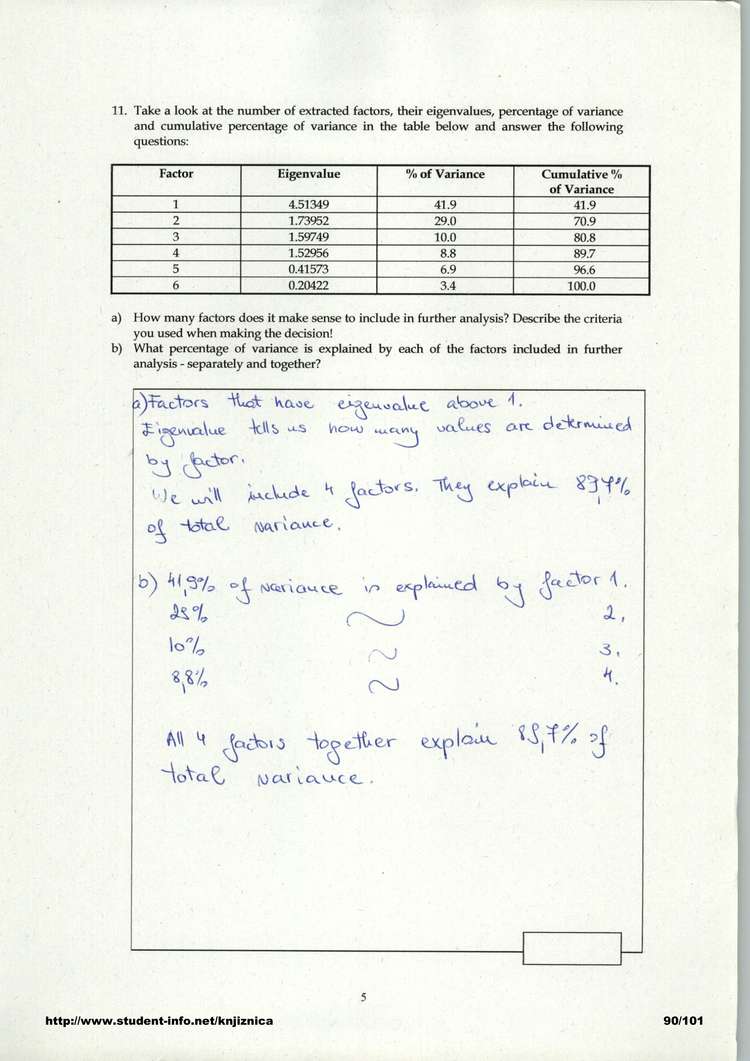 11. Take a look at the number of extracted factors, their eigenvalues, percentage of variance
and cumulative percentage of variance in the table below and answer the following
questions:
Factor Eigenvalue % of Variance Cumulative %
of Variance
1 4.51349 41.9 41.9
2 1.73952 29.0 70.9
3 1.59749 10.0 80.8
4 1.52956 8.8 89.7
5 0.41573 6.9 96.6
6 0.20422 3.4 100.0
a) How many factors does it make sense to include in further analysis? Describe the criteria
you used when making the decision!
b) What percentage of variance is explained by each of the factors included in further
analysis - separately and together?
a) Factors that have eigenvalue above 1.
Eigenvalue tells us how many values are determined
by factor.
We will include 4 factors. They explain 89,7%
of total variance.
b) 41,9% of variance is explained by factor 1.
29% ~ 2.
10% ~ 3.
8,8% ~ 4.
All 4 factors together explain 89,7% of
total variance.
5
http://www.student-info.net/knjiznica 90/101